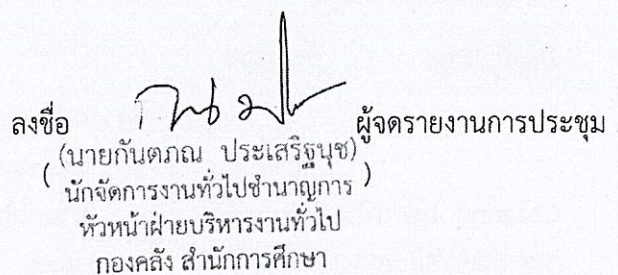 ลงชื่อ ผู้จดรายงานการประชุม
(นายกันตภณ ประเสริฐนุช)
( นักจัดการงานทั่วไปชำนาญการ )
หัวหน้าฝ่ายบริหารงานทั่วไป
กองคลัง สำนักการศึกษา